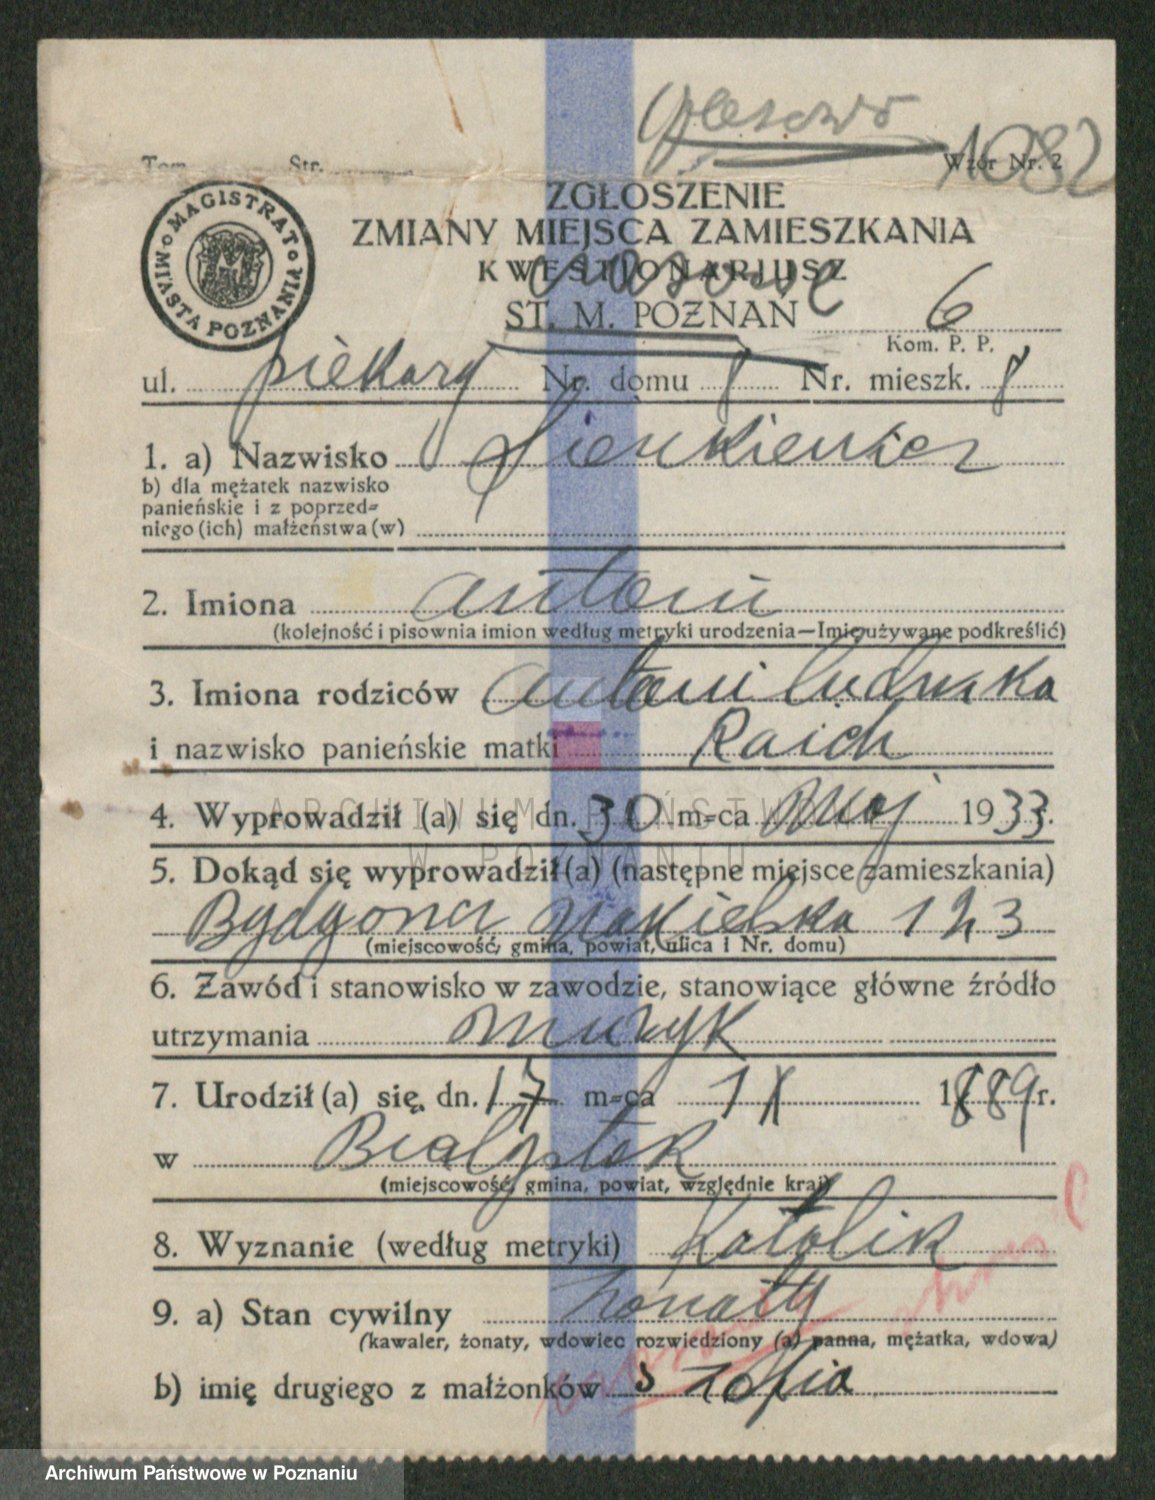 1082
Tom Str. Wzór Nr. 2
MAGISTRAT MIASTA POZNANIA
ZGŁOSZENIE
ZMIANY MIEJSCA ZAMIESZKANIA
KWESTJONARJUSZ
ST. M. POZNAŃ 6
Kom. P. P.
ul. Piekary Nr. domu 8 Nr. mieszk. 8
1. a) Nazwisko Sienkiewicz
b) dla mężatek nazwisko
panieńskie i z poprzed-
niego (ich) małżeństwa (w)
2. Imiona Antoni
(kolejność i pisownia imion według metryki urodzenia—Imię używane podkreślić)
3. Imiona rodziców Antoni Ludwika
i nazwisko panieńskie matki Raich
4. Wyprowadził (a) się dn. 30 m-ca Maj 1933 r.
5. Dokąd się wyprowadził (a) (następne miejsce zamieszkania)
Bydgoszcz Nakielska 123
(miejscowość, gmina, powiat, ulica i Nr. domu)
6. Zawód i stanowisko w zawodzie, stanowiące główne źródło
utrzymania muzyk
7. Urodził (a) się dn. 17 m-ca IX 1889 r.
w Białystok
(miejscowość, gmina, powiat, względnie kraj)
8. Wyznanie (według metryki) Katolik
9. a) Stan cywilny żonaty
(kawaler, żonaty, wdowiec rozwiedziony (a) panna, mężatka, wdowa)
b) imię drugiego z małżonków Zofia
ARCHIWUM PAŃSTWOWE
W POZNANIU
Archiwum Państwowe w Poznaniu